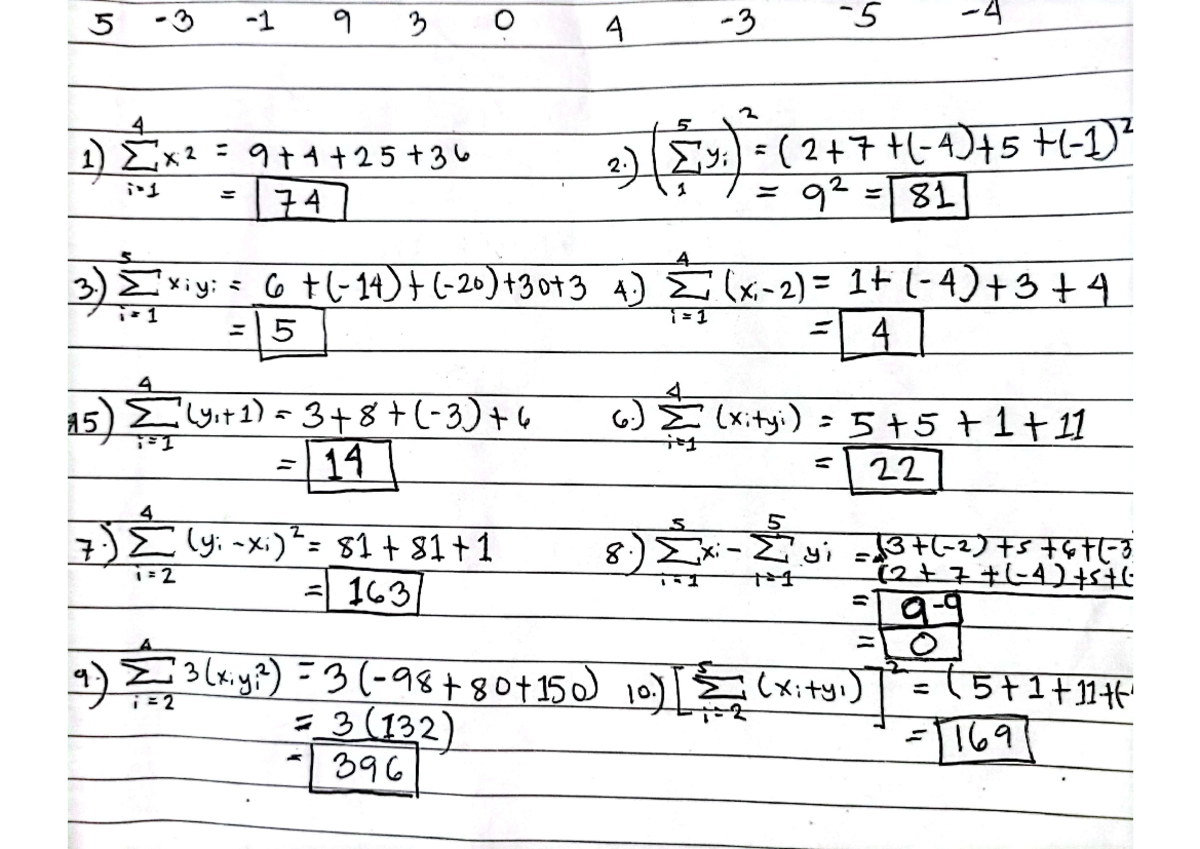 5 -3 -1 9 3 0 4 -3 -5 -4
1) 4 Σ i=1 x² = 9+4+25+36
= 74
2.) (5 Σ 1 yi)² = (2+7+(-4)+5+(-1)²
= 9² = 81
3.) 5 Σ i=1 xiyi = 6+(-14)+(-20)+30+3
= 5
4.) 4 Σ i=1 (xi-2) = 1+(-4)+3+4
= 4
15) 4 Σ i=1 (yi+1) = 3+8+(-3)+6
= 14
6.) 4 Σ i=1 (xi+yi) = 5+5+1+11
= 22
7.) 4 Σ i=2 (yi-xi)² = 81+81+1
= 163
8.) 5 Σ i=1 xi - 5 Σ i=1 yi = (3+(-2)+5+6+(-3
(2+7+(-4)+5+(-
= 9-9
= 0
9.) 4 Σ i=2 3(xiyi²) = 3(-98+80+150)
= 3(132)
= 396
10.) [5 Σ i=2 (xi+yi)]² = (5+1+11+(-
= 169